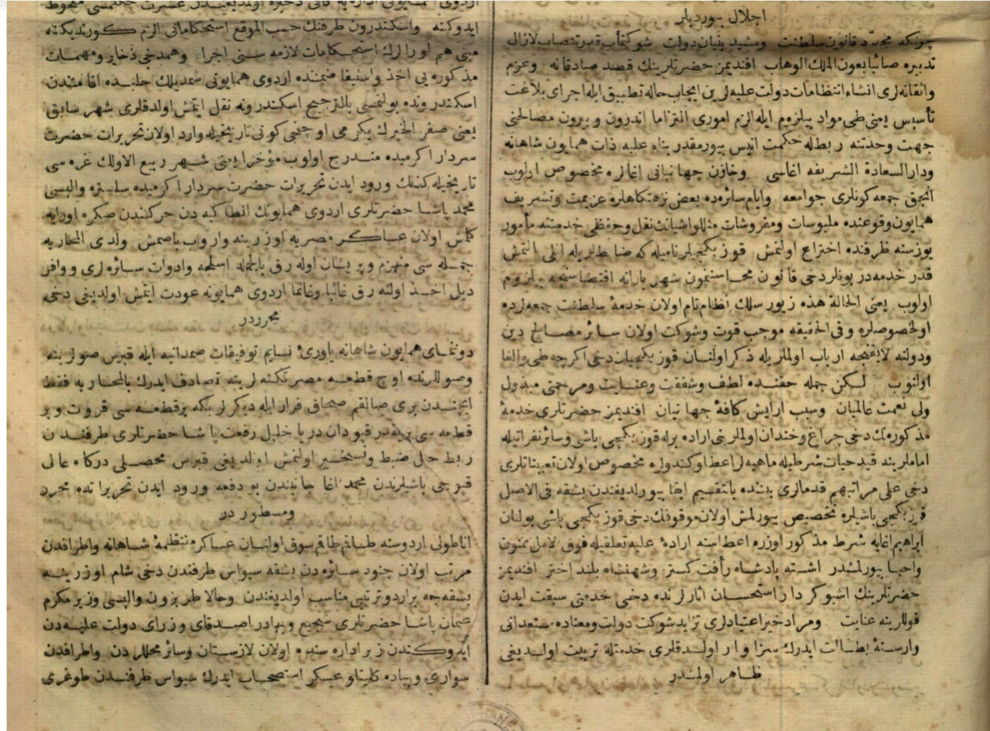 اجلال بیوردیلر
چونکه مجدد قانون سلطنت ومشید بنیان دولت شوکتمآب قدرتنصاب لازال
تدبیره صائبا بعون الملك الوهاب افندیمز حضرتلرینك قصد صادقانه وعزم
واتقانه لری انشاء انتظامات دولت علیه لرین ایجاب حاله تطبیق ایله اجرای بلاغت
تأسیس یعنی طی مواد بیلزوم ایله الزم اموری التزاما اندرون و بیرون مصالحنی
جهت وحدتنه ربطله حکمت اتیس بیورمقدر بناء علیه ذات همایون شاهانه
ودار السعادة الشریفه اغاسی وخازن جهانبانی اغازه مخصوص اولوب
انجق جمعه کونلری جوامعه وایام سائره ده بعض نزهتکاهلره عزیمت وتشریف
همایون وقوعنده ملبوسات ومفروشات مثللو اشیانك نقل وحفظی خدمتنه مأمور
یوز سنه ظرفنده اختراع اولنمش قوز بکجیلر نامیله که ضابطلریله اللی التمش
قدر خدمه در بونلر دخی قانون محاسنمون شهریارانه اقتضاسنجه بیلزوم
اولوب یعنی الحالة هذه زیور سلك نظام تام اولان خدمۀ سلطنت جمعه زده
اولخصوصلره وفی الحقیقه موجب قوت وشوکت اولان سائر مصالح دین
ودولتنه لایقیجه ارباب اولملریله ذکر اولنان قوز بکجیان دخی اکرچه طی والغا
اولنوب لکن جمله حقنده لطف وشفقت وعنایت ومرحمتی مبذول
ولی نعمت عالمیان وسبب ارایش کافۀ جهانیان افندیمز حضرتلری خدمۀ
مذکوره نك دخی چراغ وخندان اولملرینی اراده برله قوز بکجی باشی وسائر نفراتیله
اماملرینه قید حیات شرطیله ماهیه لر اعطا وکندولره مخصوص اولان تعییناتلری
دخی علی مراتبهم قدملری بیننده بالتقسیم ابقا بیورلدیغندن بشقه فی الاصل
قوز بکجی باشیلره تخصیص بیورلمش اولان موقوفك دخی قوز بکجی باشی بولنان
ابراهیم اغایه شرط مذکور اوزره اعطاسنه ارادۀ علیه تعلقیله فوق الامل ممنون
واحیا بیورلمشدر اشته پادشاه رأفت کستر وشهنشاه بلند اختر افندیمز
حضرتلرینك اشبو کردار استحسان اثارلرنده دخی خدمتی سبقت ایدن
قوللرینه عنایت ومراد خیر اعتیادلری تزاید شوکت دولت ومعناده مستعدانی
وارسته بطالت ایدرك سزاوار اولدقلری خدمتله تربیت اولدیغی
ظاهر اولمشدر
ایدوکنه واسکندرون طرفنك حسب الموقع استحکاماتی الزم کورندیکنه
مبنی هم اورارك استحکامات لازمه سنی اجرا وهمدخی ذخایر ومهمات
مذکوره یی اخذ واستیفا ضمننده اردوی همایونی شمدیلك حلبده اقامتندن
اسکندرونده بولنمسی بالترجیح اسکندرونه نقل ایتمش اولدقلری شهر سابق
یعنی صفر الخیرك یکرمی اوچنجی کونی تاریخیله وارد اولان تحریرات حضرت
سردار اکرمیده مندرج اولوب مؤخرا یعنی شهر ربیع الاولك غره سی
تاریخیله کذلك ورود ایدن تحریرات حضرت سردار اکرمیده سلستره والیسی
محمد پاشا حضرتلری اردوی همایونك انطاکیه دن حرکتندن صکره اورایه
کلمش اولان عساکر مصریه اوزرینه واروب باصمش ولدی المحاربه
جمله سی منهزم و پریشان اوله رق باجمله اسلحه وادوات سائره لری و وافر
دیل اخذ اولنه رق غالبا وغانما اردوی همایونه عودت ایتمش اولدیغی دخی
محرردر
دونمای همایون شاهانه یاوری نسایم توفیقات صمدانیه ایله قبرس صولرینه
وصوللرنده اوچ قطعه مصر تکنه لرینه تصادف ایدرك بالمحاربه فقط
ایچندن بری صالقم صچاق فرار ایله دیکرلریکه بر قطعه سی قروت و بر
قطعه سی بریقدر قپودان دریا خلیل رفعت پاشا حضرتلری طرفندن
ربط حبل ضبط وتسخیر اولنمش اولدیغی قبرس محصلی درکاه عالی
قپوجی باشیلرندن محمد اغا جانبندن بو دفعه ورود ایدن تحریراتده محرر
ومسطوردر
اناطولی اردوسنه طاقم طاقم سوق اولنان عساکر منتظمۀ شاهانه واطرافدن
مرتب اولان جنود سائره دن بشقه سیواس طرفندن دخی شام اوزرینه
بشقه جه بر اردو ترتیبی مناسب اولدیغندن وحالا طربزون والیسی وزیر مکرم
عثمان پاشا حضرتلری شجیع وبهادر اصدقای وزرای دولت علیه دن
ایدوکندن زیر اداره سنده اولان لازستان وسائر محللردن واطرافدن
سواری وپیاده کلیتلو عسکر استصحاب ایدرك سیواس طرفندن طوغری